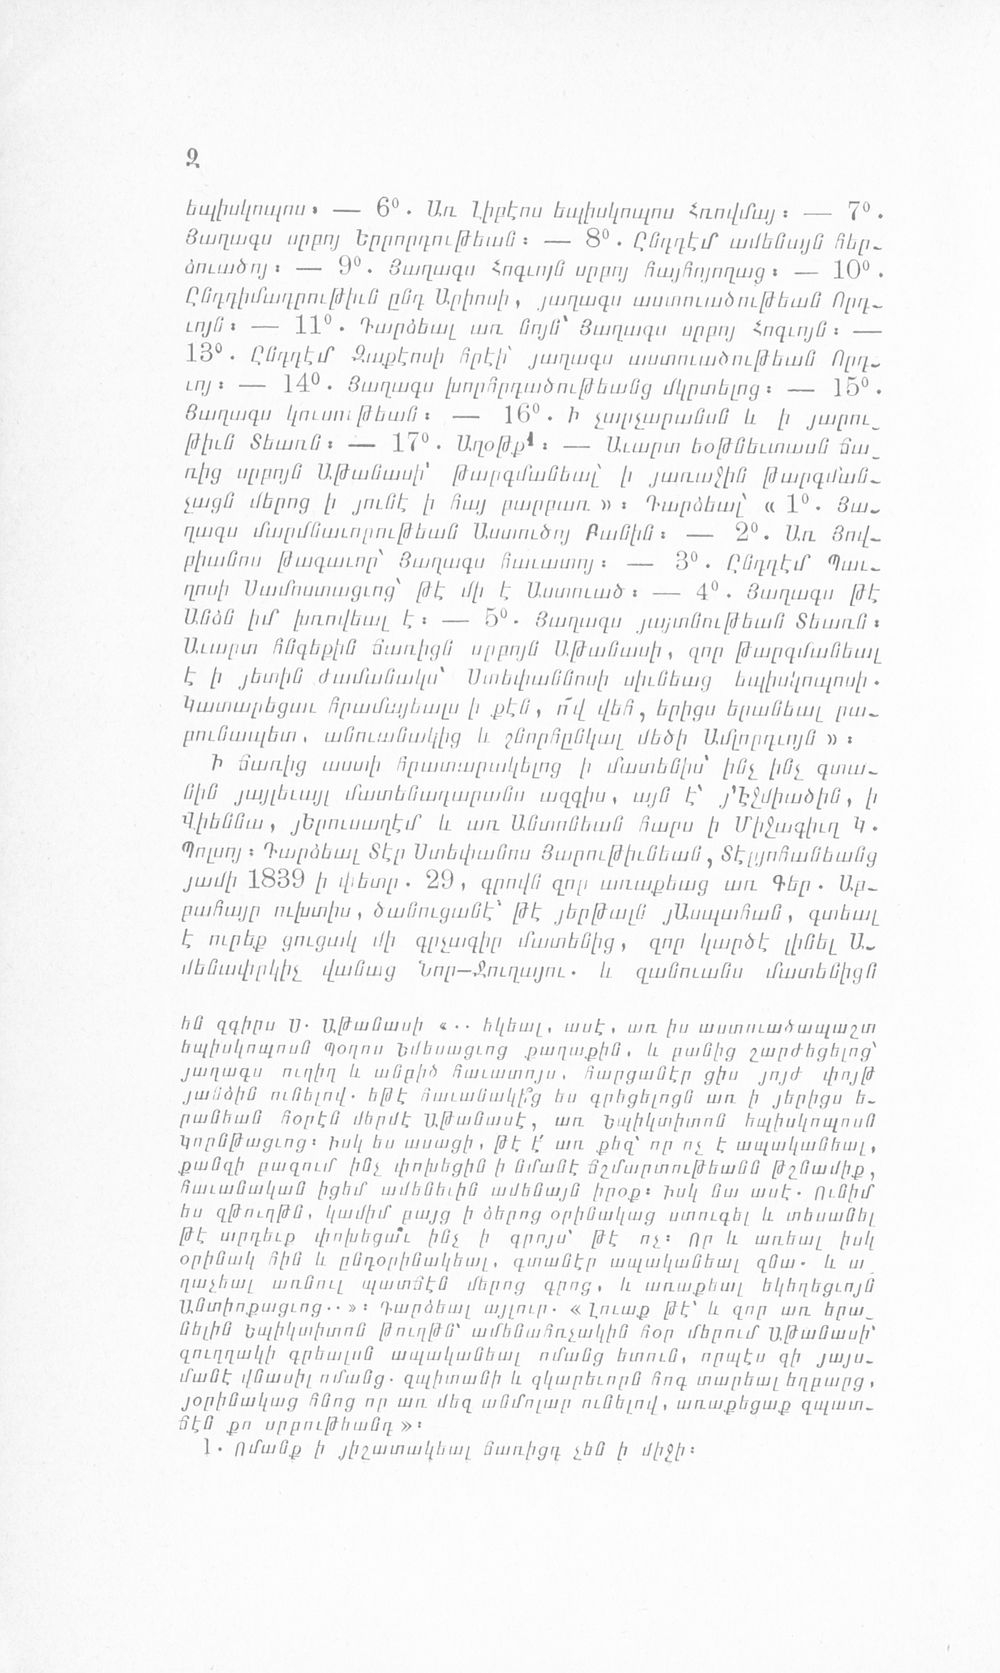 Զ
եպիսկոպոս։ — 6⁰. Առ Լիբէոս եպիսկոպոս Հռովմայ։ — 7⁰.
Յաղագս սրբոյ Երրորդութեան։ — 8⁰. Ընդդէմ ամենայն հեր֊
ձուածոյ։ — 9⁰. Յաղագս Հոգւոյն սրբոյ հայհոյողաց։ — 10⁰.
Ընդդիմադրութիւն ընդ Արիոսի, յաղագս աստուածութեան Որդ֊
ւոյն։ — 11⁰. Դարձեալ առ նոյն՝ Յաղագս սրբոյ Հոգւոյն։ —
13⁰. Ընդդէմ Զաքէոսի հրէի՝ յաղագս աստուածութեան Որդ֊
ւոյ։ — 14⁰. Յաղագս խորհրդածութեանց մկրտելոց։ — 15⁰.
Յաղագս կուսութեան։ — 16⁰. Ի չարչարանսն և ի յարու֊
թիւն Տեառն։ — 17⁰. Աղօթք¹։ — Աւարտ եօթնեւտասն ճա֊
ռից սրբոյն Աթանասի՝ թարգմանեալ ի յառաջին թարգման֊
չացն մերոց ի յունէ ի հայ բարբառ»։ Դարձեալ՝ «1⁰. Յա֊
ղագս մարմնաւորութեան Աստուծոյ Բանին։ — 2⁰. Առ Յով֊
բիանոս թագաւոր՝ Յաղագս հաւատոյ։ — 3⁰. Ընդդէմ Պաւ֊
ղոսի Սամոստացւոց՝ թէ մի է Աստուած։ — 4⁰. Յաղագս թէ
Անձն իմ խռովեալ է։ — 5⁰. Յաղագս յայտնութեան Տեառն։
Աւարտ հնգեքին ճառիցն սրբոյն Աթանասի, զոր թարգմանեալ
է ի յետին ժամանակս՝ Ստեփաննոսի սիւնեաց եպիսկոպոսի.
Կատարեցաւ հրամայեալս ի քէն, ո՛վ վեհ, երիցս երանեալ րա֊
բունապետ, անուանակից և շնորհընկալ մեծի Ամլորդւոյն»։
Ի ճառից աստի հրատարակելոց ի մատենիս՝ ինչ ինչ գտա֊
նին յայլեւայլ մատենադարանս ազգիս, այն է՝ յԷջմիածին, ի
Վիեննա, յԵրուսաղէմ և առ Անտոնեան հարս ի Միջագիւղ Կ.
Պոլսոյ։ Դարձեալ Տէր Ստեփանոս Յարութիւնեան, Տէլյոհանեանց
յամի 1839 ի փետր. 29, գրովն զոր առաքեաց առ Գեր. Աբ֊
րահայր ուխտիս, ծանուցանէ՝ թէ յերթալն յԱսպահան, գտեալ
է ուրեք ցուցակ մի գրչագիր մատենից, զոր կարծէ լինել Ա֊
մենափրկիչ վանաց Նոր—Ջուղայու. և զանուանս մատենիցն
են զգիրս Ս. Աթանասի «.. եկեալ, ասէ, առ իս աստուածապաշտ
եպիսկոպոսն Պօղոս Եմեսացւոց քաղաքին, և բանից շարժեցելոց՝
յաղագս ուղիղ և անբիծ հաւատոյս, հարցանէր ցիս յոյժ փոյթ
յանձին ունելով. եթէ հաւանակի՞ց ես գրեցելոցն առ ի յերիցս ե֊
րանեան հօրէն մերմէ Աթանասէ, առ Եպիկտիտոն եպիսկոպոսն
Կորնթացւոց։ Իսկ ես ասացի, թէ է՛ առ քեզ՝ որ ոչ է ապականեալ,
քանզի բազում ինչ փոխեցին ի նմանէ ճշմարտութեանն թշնամիք,
հաւանական իցեմ ամենեւին ամենայն իրօք։ Իսկ նա ասէ. Ունիմ
ես զթուղթն, կամիմ բայց ի ձերոց օրինակաց ստուգել և տեսանել
թէ արդեւք փոխեցա՞ւ ինչ ի գրոյս՝ թէ ոչ։ Որ և առեալ իսկ
օրինակ հին և ընդօրինակեալ, գտանէր ապականեալ զնա. և ա֊
ղաչեալ առնուլ պատճէն մերոց գրոց, և առաքեալ եկեղեցւոյն
Անտիոքացւոց..»։ Դարձեալ այլուր. «Լուաք թէ՝ և զոր առ երա֊
նելին Եպիկտիտոն թուղթն՝ ամենահռչակին հօր մերում Աթանասի՝
զուղղակի գրեալսն ապականեալ ոմանց ետուն, որպէս զի յայս֊
մանէ վնասիլ ոմանց. զպիտանի և զկարեւորն հոգ տարեալ եղբարց,
յօրինակաց հնոց որ առ մեզ անմոլար ունելով, առաքեցաք զպատ֊
ճէն քո սրբութեանդ»։
1. Ոմանք ի յիշատակեալ ճառիցդ չեն ի միջի։